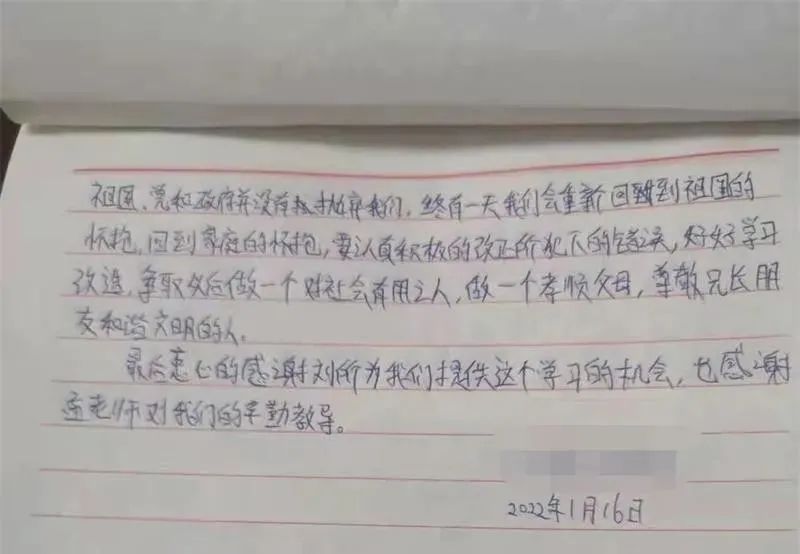 祖国、党和政府并没有抛弃我们，终有一天我们会重新回到祖国的
怀抱，回到家庭的怀抱，要认真积极的改正所犯下的错误，好好学习
改造，争取以后做一个对社会有用之人，做一个孝顺父母，尊敬兄长朋
友和谐文明的人。
最后衷心的感谢刘所为我们提供这个学习的机会，也感谢
老师对我们的辛勤教导。
2022年1月16日